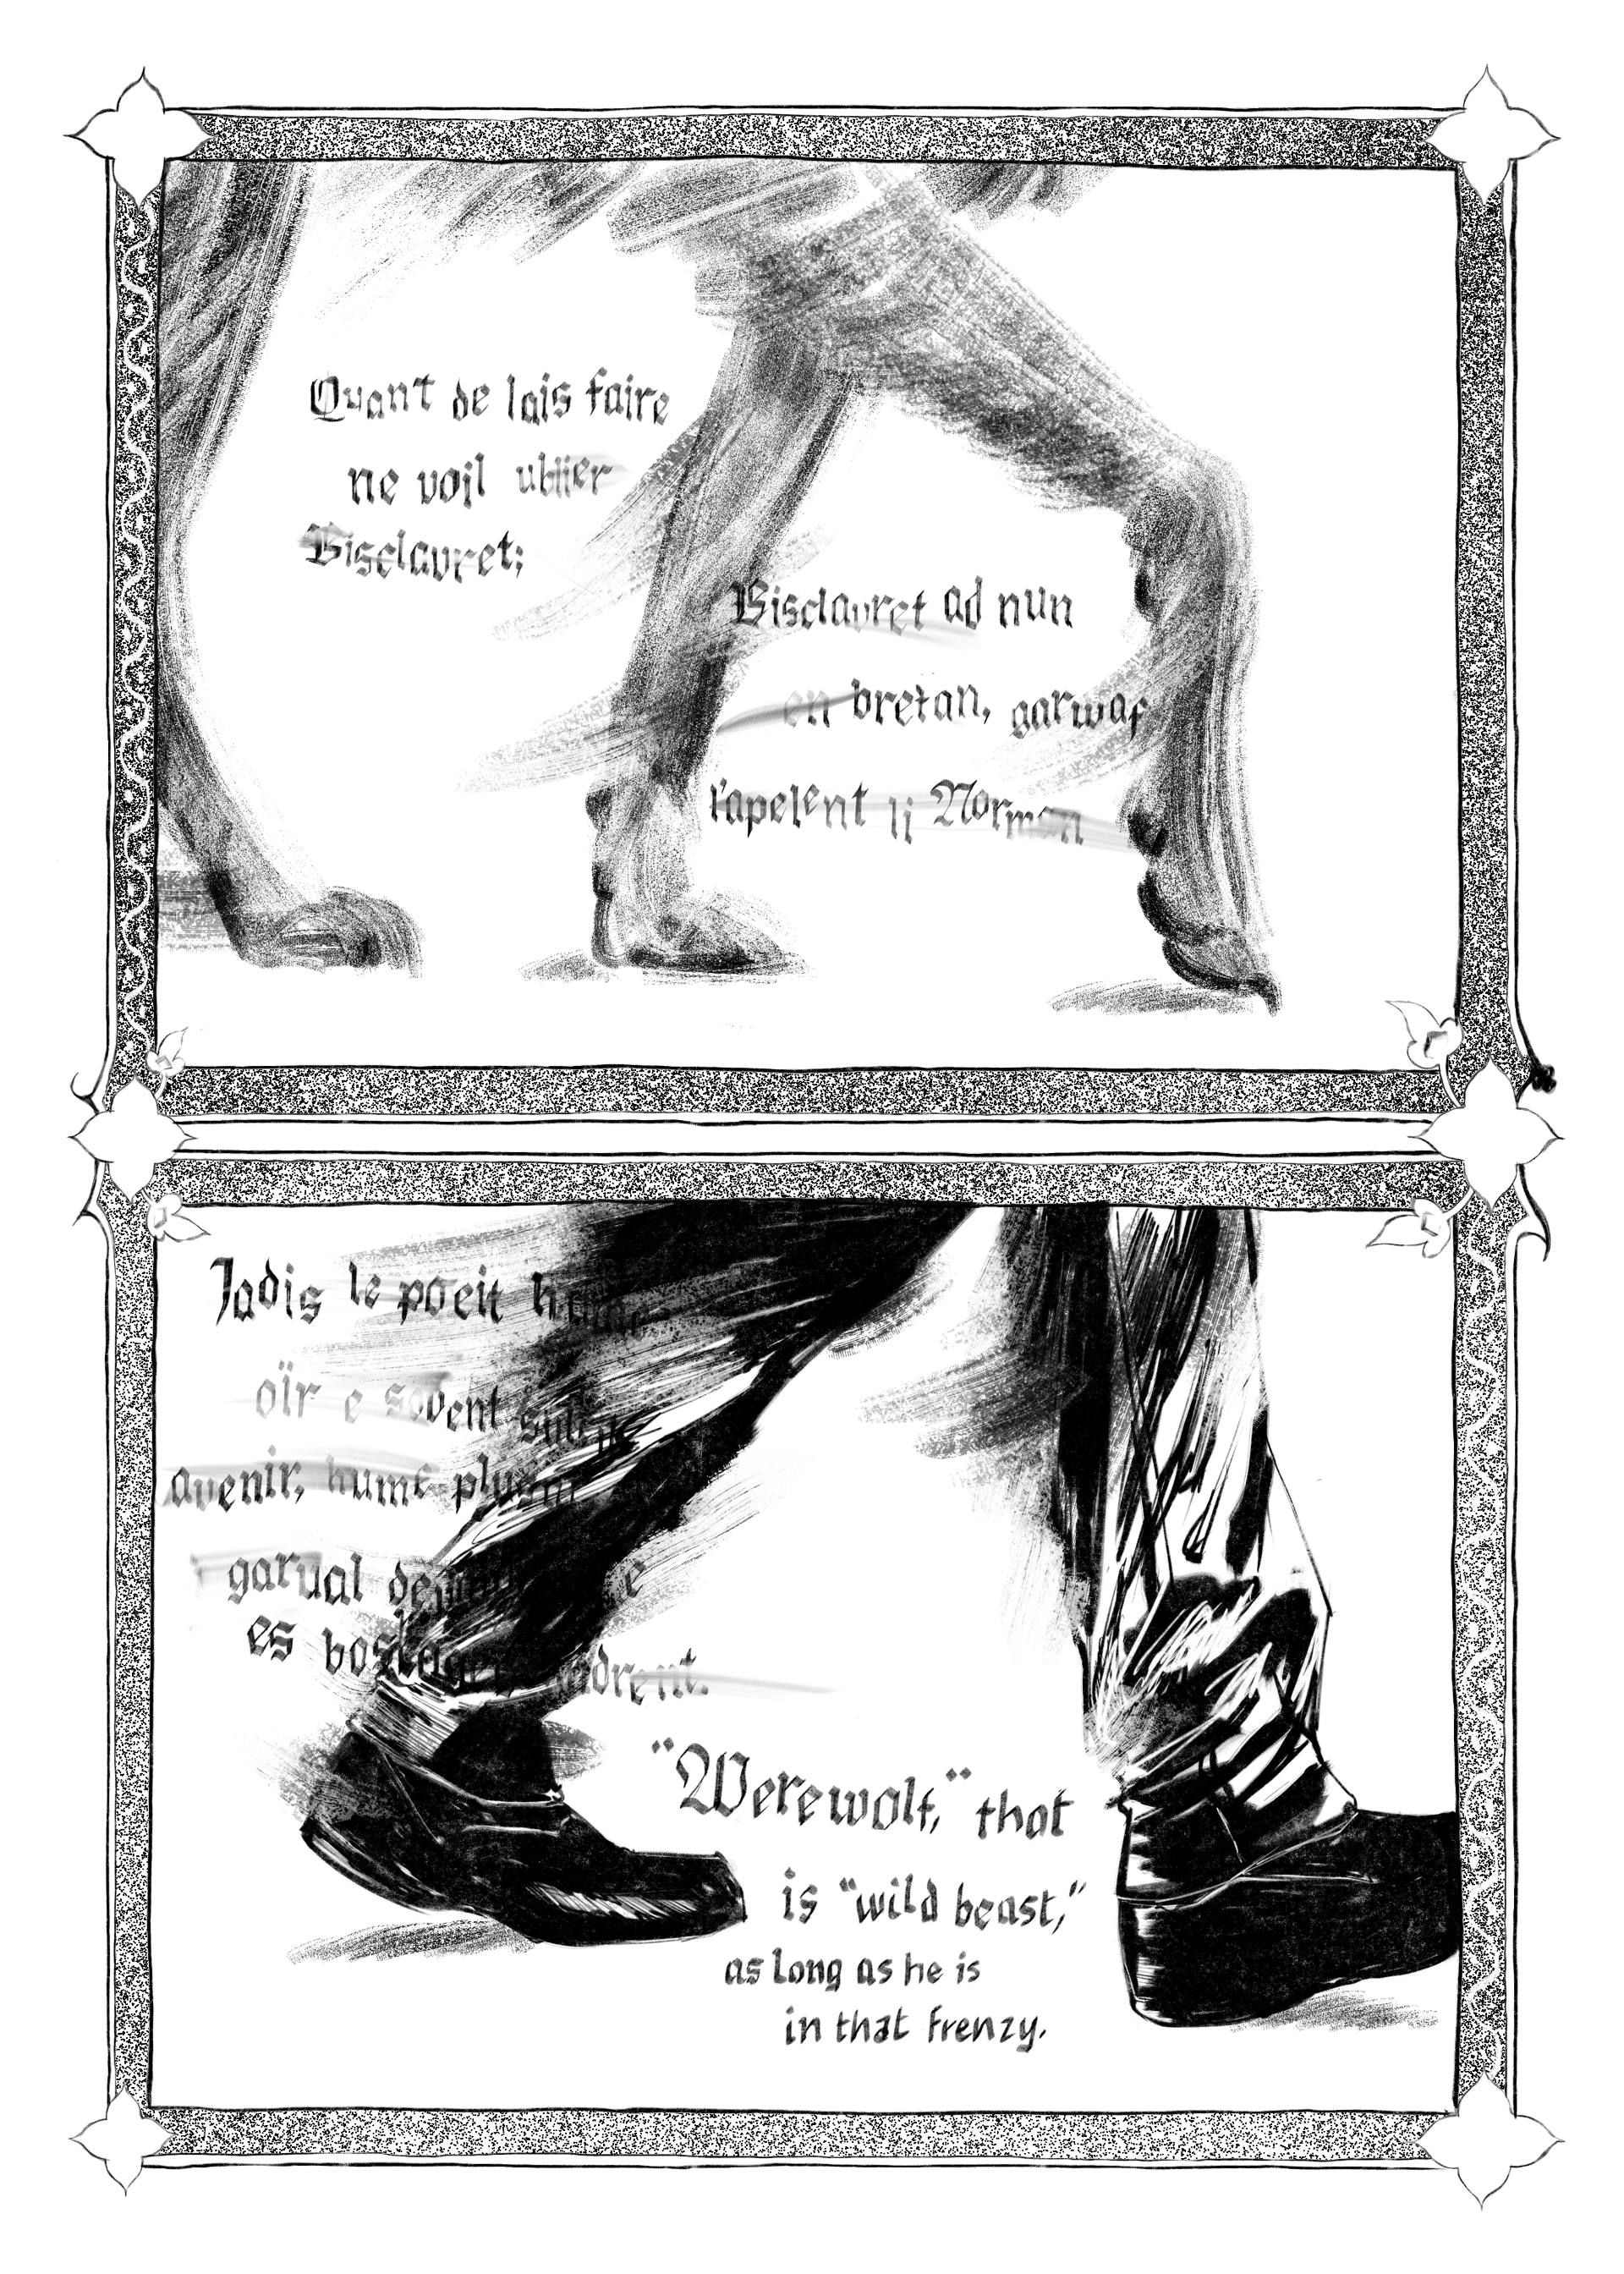 Quant de lais faire
ne voil ublier
Bisclavret;
Bisclavret ad nun
en bretan, garwaf
l'apelent li Norman
Jadis le poeit hume
oïr e sovent suleit
avenir, hume plusur
garual devindrent e
es boscages tindrent.
"Werewolf," that
is "wild beast,"
as long as he is
in that frenzy.